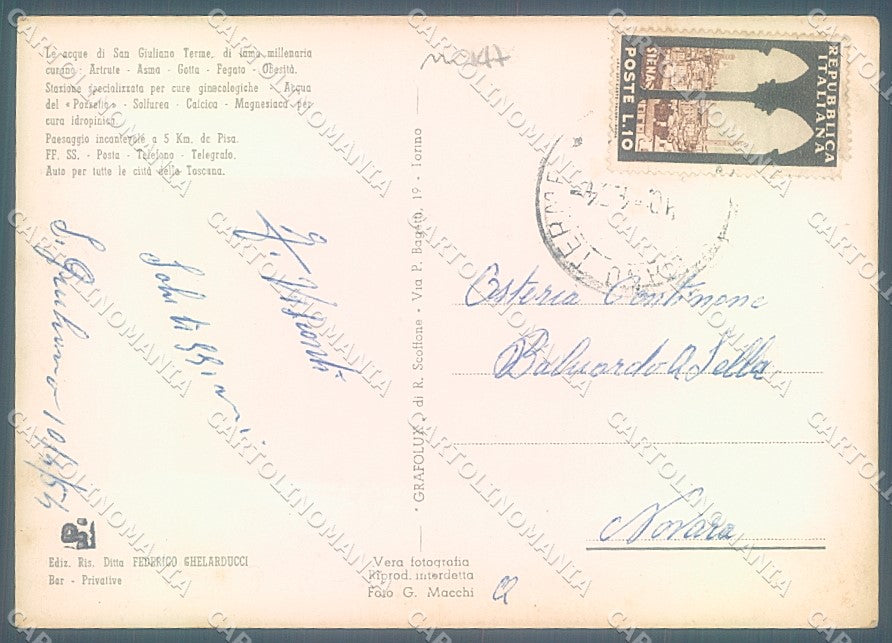 Le acque di San Giuliano Terme, di fama millenaria
curano - Artrute - Asma - Gotta - Fegato - Obesità.
Stazione specializzata per cure ginecologiche - Acqua
del «Pozzetto» - Solfurea - Calcica - Magnesiaca per
cura idropinica.
Paesaggio incantevole a 5 Km. da Pisa.
FF. SS. - Posta - Telefono - Telegrafo.
Auto per tutte le città della Toscana.
S. Giuliano 10/5/54
Saluti
Visconti
Ediz. Ris. Ditta FEDERICO GHELARDUCCI
Bar - Privative
GRAFOLUX di R. Scoffone - Via P. Bagetti, 19 - Torino
Vera fotografia
Riprod. interdetta
Foto G. Macchi
REPUBBLICA
ITALIANA
SIENA
POSTE L.10
TERME
Osteria Continone
Baluardo Q. Sella
Novara
CARTOLINOMANIA